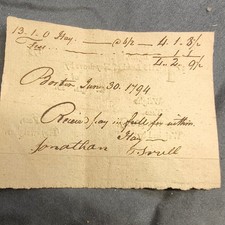 13.1.0 Hay — @ 6/2 — 4.1.8½
Fees — 1.1
4.2.9½
Boston June 30. 1794
Receiv'd pay in full for within
Hay —
Jonathan